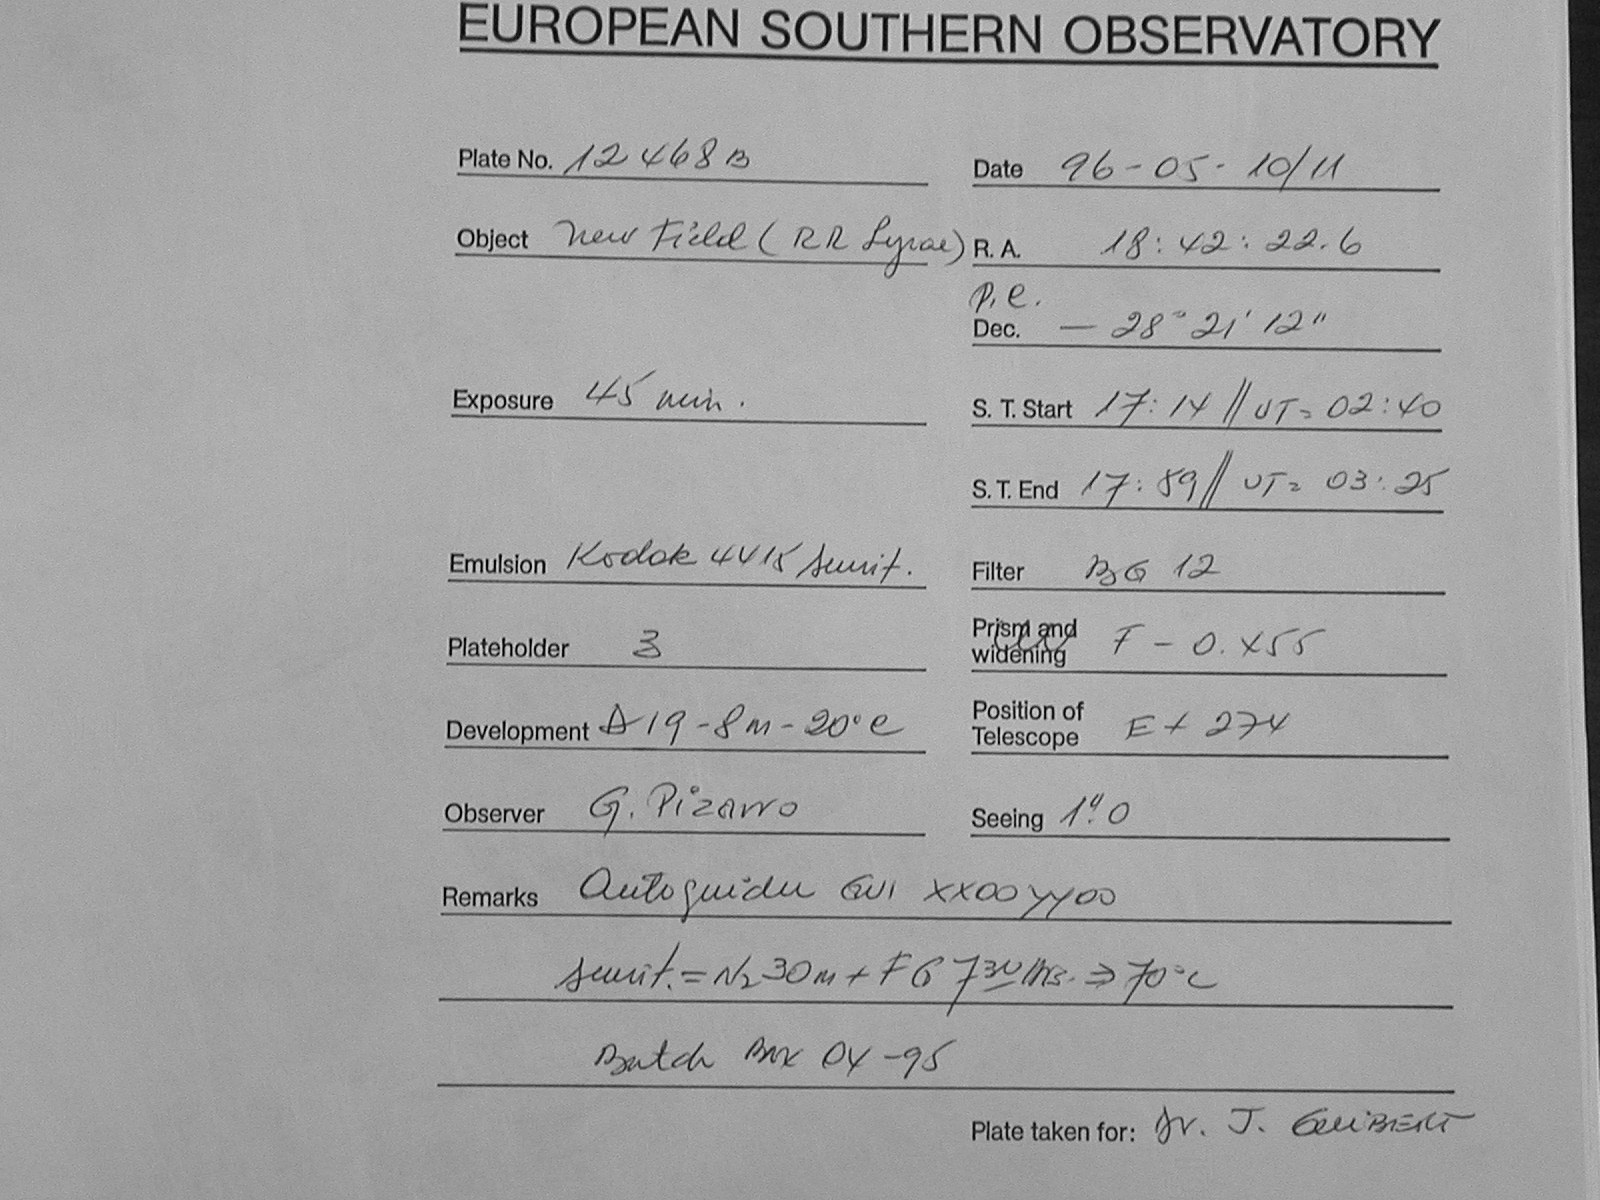 EUROPEAN SOUTHERN OBSERVATORY
Plate No. 12468B Date 96-05-10/11
Object New Field (RR Lyrae) R. A. 18:42:22.6
p.e.
Dec. — 28° 21' 12"
Exposure 45 min. S. T. Start 17:14 // UT= 02:40
S. T. End 17:59 // UT= 03:25
Emulsion Kodak 4415 sensit. Filter BG 12
Plateholder 3 Prism and widening F - 0.455
Development D19-8m-20°C Position of Telescope E + 274
Observer G. Pizarro Seeing 1".0
Remarks Autoguider GUI XX00YY00
sensit. = N2 30m + FG 7 30 hrs. ⇒ 70°C
Batch Box 04-95
Plate taken for: Dr. J. GUIBERT